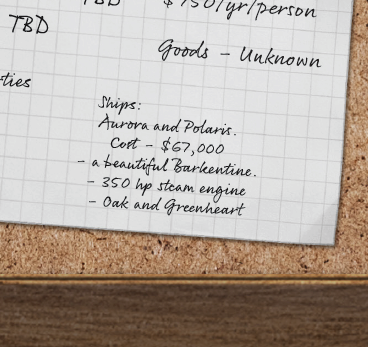 TBD
$750/yr/person
TBD
Goods – Unknown
ties
Ships:
Aurora and Polaris.
Cost – $67,000
- a beautiful Barkentine.
- 350 hp steam engine
- Oak and Greenheart